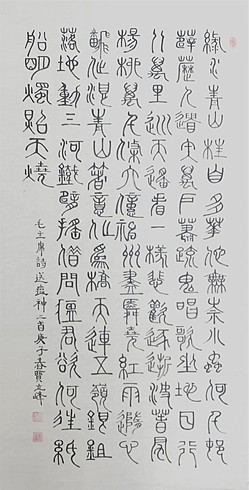 綠水青山枉自多華佗無奈小蟲何千村
薜荔人遺矢萬戶蕭疏鬼唱歌坐地日行
八萬里巡天遙看一樣悲歡逐逝波春風
楊柳萬千條六億神州盡舜堯紅雨隨心
翻作浪青山着意化為橋天連五嶺銀鋤
落地動三河鐵臂搖借問瘟君欲何往紙
船明燭照天燒
毛主席詩送瘟神二首庚子春